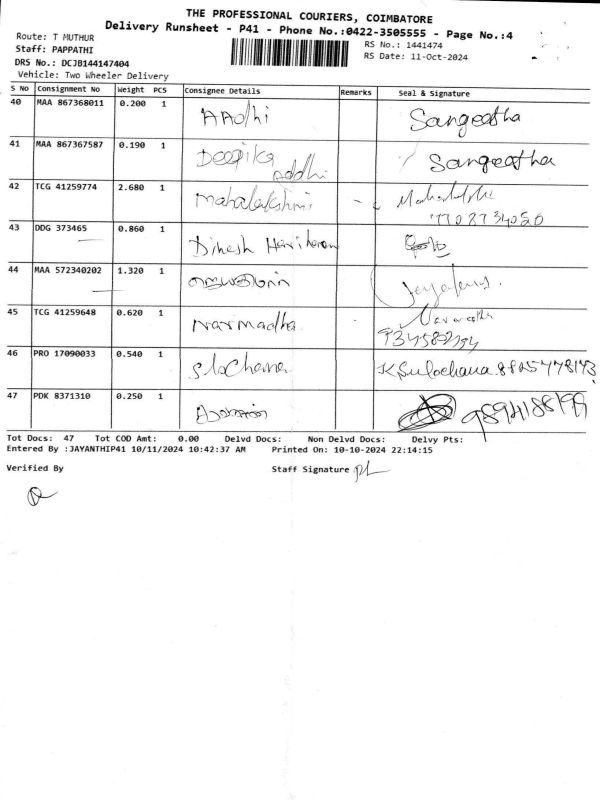 THE PROFESSIONAL COURIERS, COIMBATORE
Delivery Runsheet - P41 - Phone No.:0422-3505555 - Page No.:4
Route: T MUTHUR
RS No.: 1441474
Staff: PAPPATHI
RS Date: 11-Oct-2024
DRS No.: DCJB144147404
Vehicle: Two Wheeler Delivery
S No Consignment No Weight PCS Consignee Details Remarks Seal & Signature
40 MAA 867368011 0.200 1 AAdhi Sangeetha
41 MAA 867367587 0.190 1 Deepika Addhi Sangeetha
42 TCG 41259774 2.680 1 Mahalakshmi -
43 DDG 373465 0.860 1 Dinesh Hariharan
44 MAA 572340202 1.320 1
45 TCG 41259648 0.620 1 Narmadha
46 PRO 17090033 0.540 1 K Sulochana
47 PDK 8371310 0.250 1 9894188199
Tot Docs: 47 Tot COD Amt: 0.00 Delvd Docs: Non Delvd Docs: Delvy Pts:
Entered By :JAYANTHIP41 10/11/2024 10:42:37 AM Printed On: 10-10-2024 22:14:15
Verified By Staff Signature